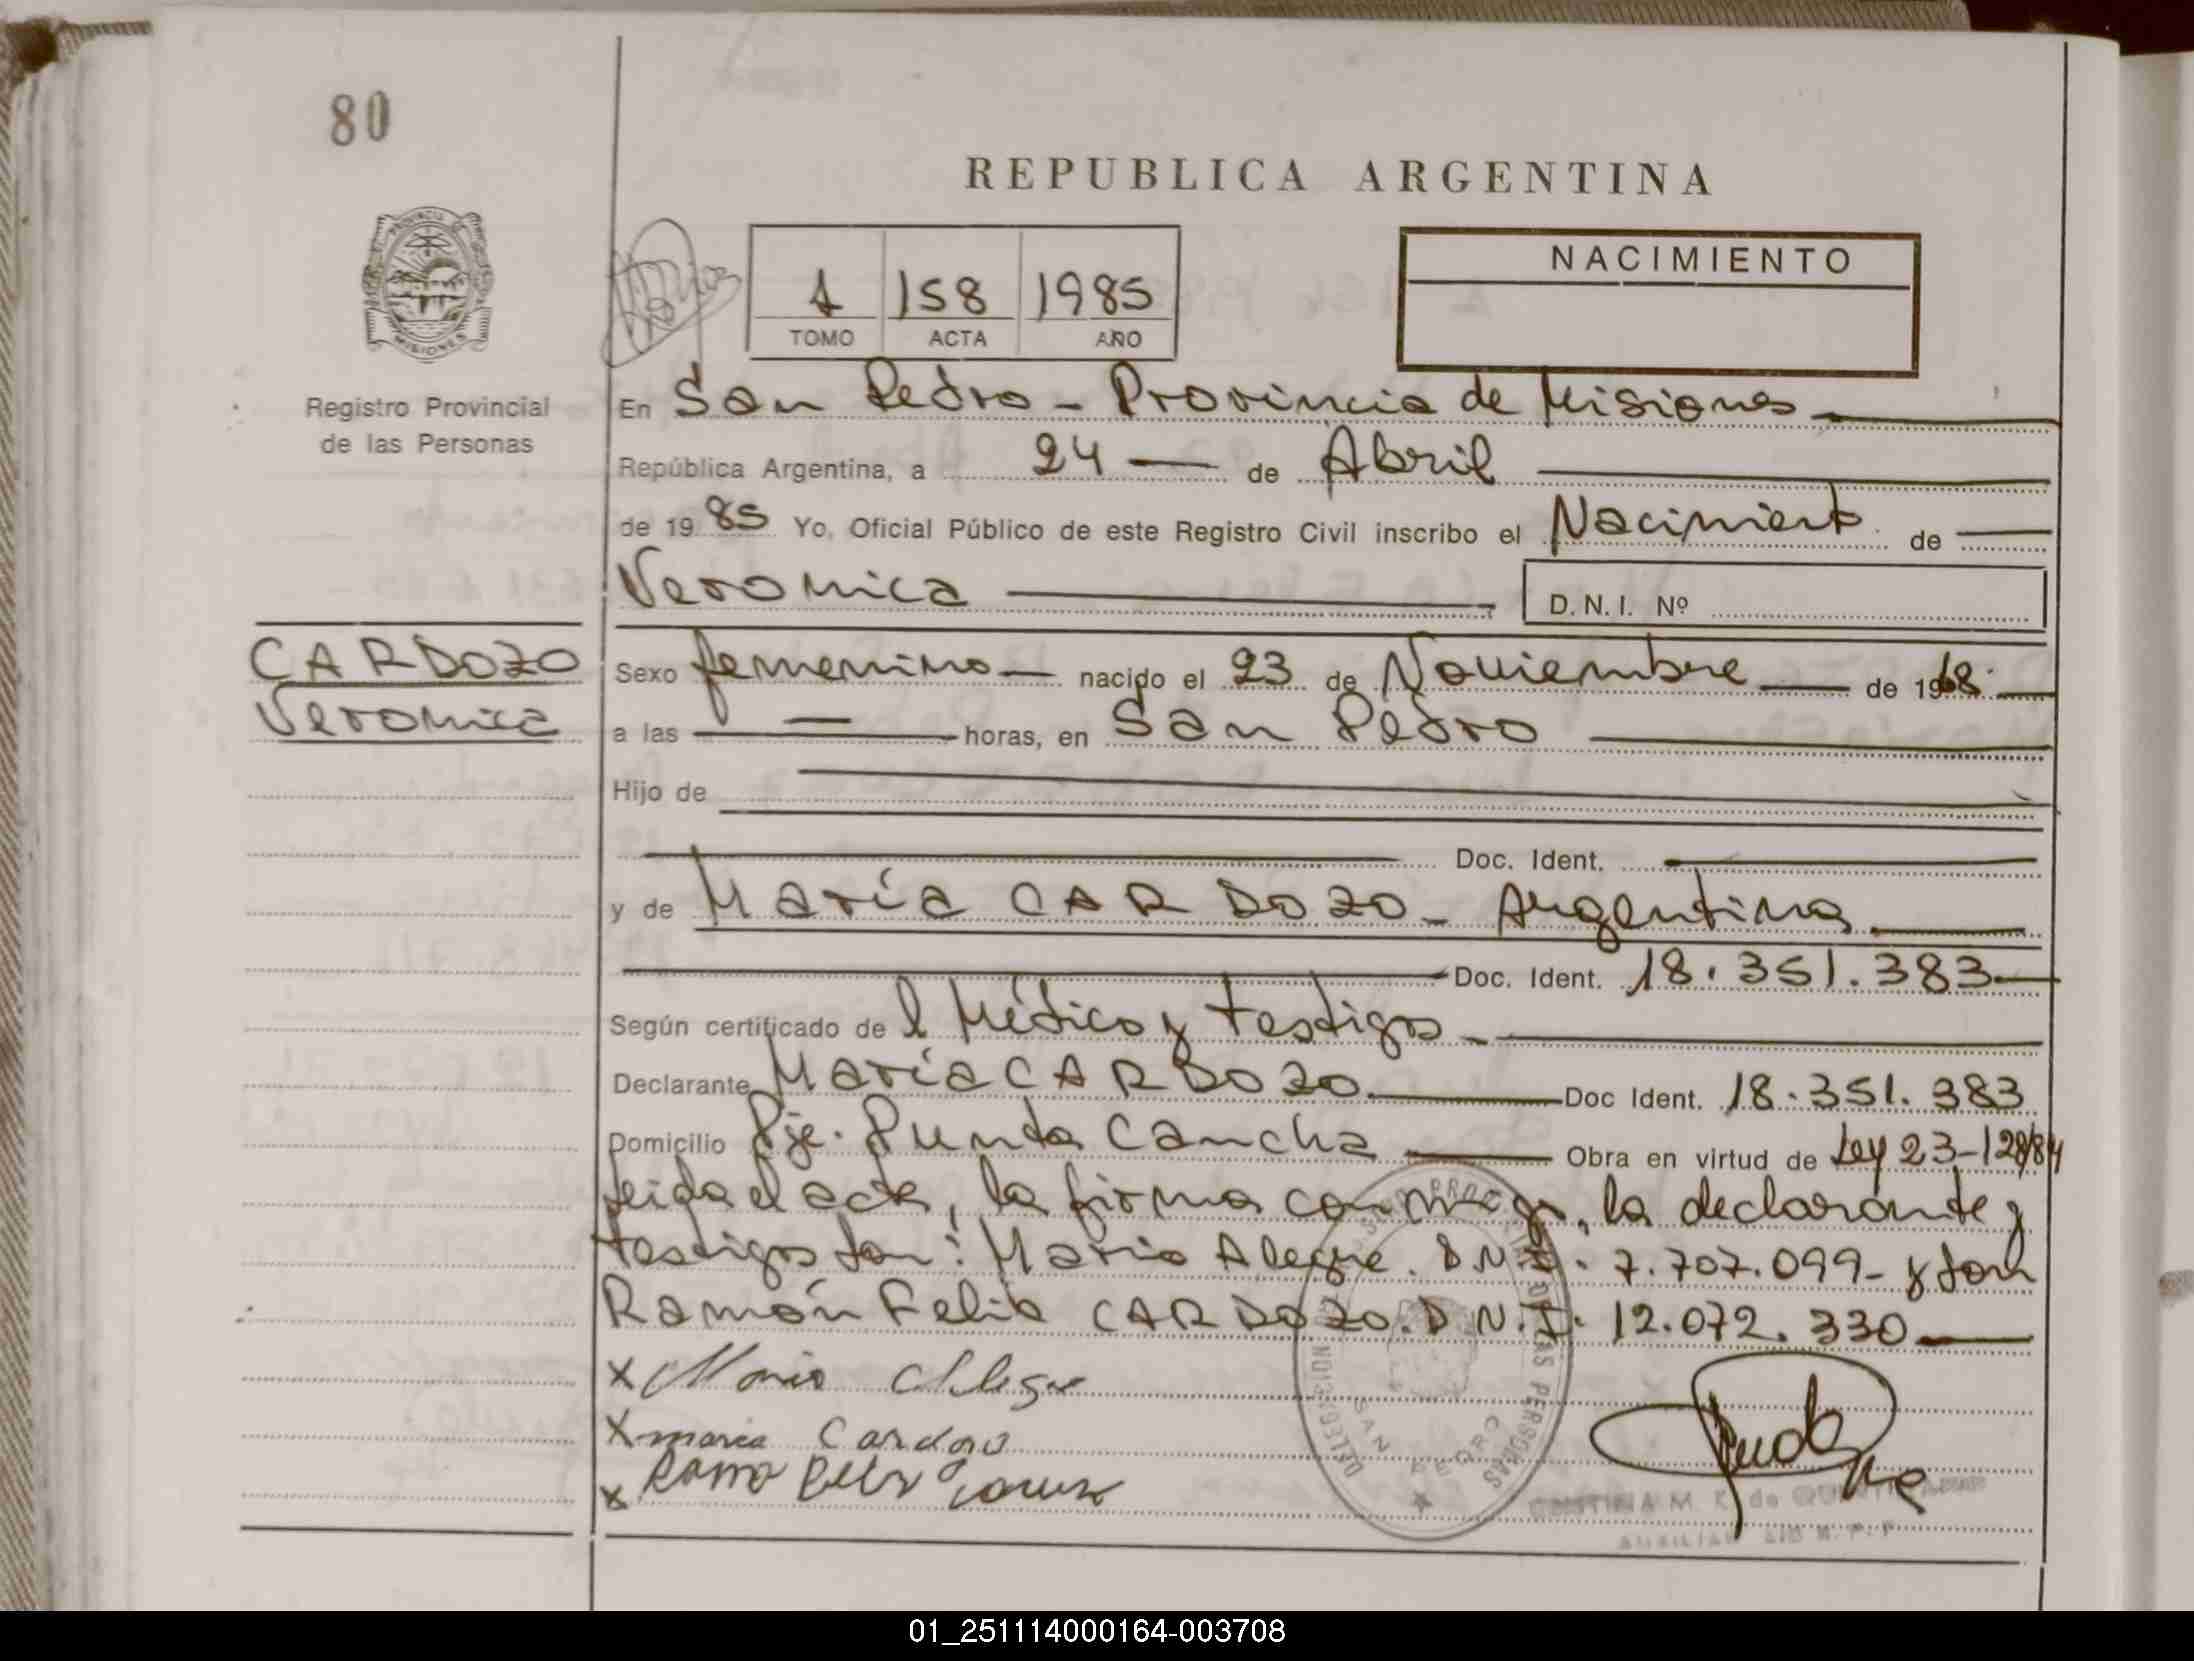 80
REPUBLICA ARGENTINA
PROVINCIA DE
MISIONES
1 158 1985
TOMO ACTA AÑO
NACIMIENTO
Registro Provincial
de las Personas
En San Pedro - Provincia de Misiones
República Argentina, a 24 — de Abril
de 1985 Yo, Oficial Público de este Registro Civil inscribo el Nacimiento de
Veronica
D.N.I. Nº
CARDOZO
Veronica
Sexo femenino — nacido el 23 de Noviembre — de 1968.
a las — horas, en San Pedro
Hijo de
Doc. Ident.
y de María CARDOZO - Argentina
Doc. Ident. 18.351.383
Según certificado de l Médico y testigos -
Declarante María CARDOZO. Doc Ident. 18.351.383
Domicilio Pje. Punta Cancha — Obra en virtud de Ley 23-128/84
leida el acta, la firma conmigo, la declarante y
testigos Don: Mario Alegre. D.N.I. 7.707.099- y Don
Ramón Felix CARDOZO. D.N.I. 12.072.330
x Mario Alegre
x maria Cardozo
x
DELEGACION SAN PEDRO
AUXILIAR
01_251114000164-003708